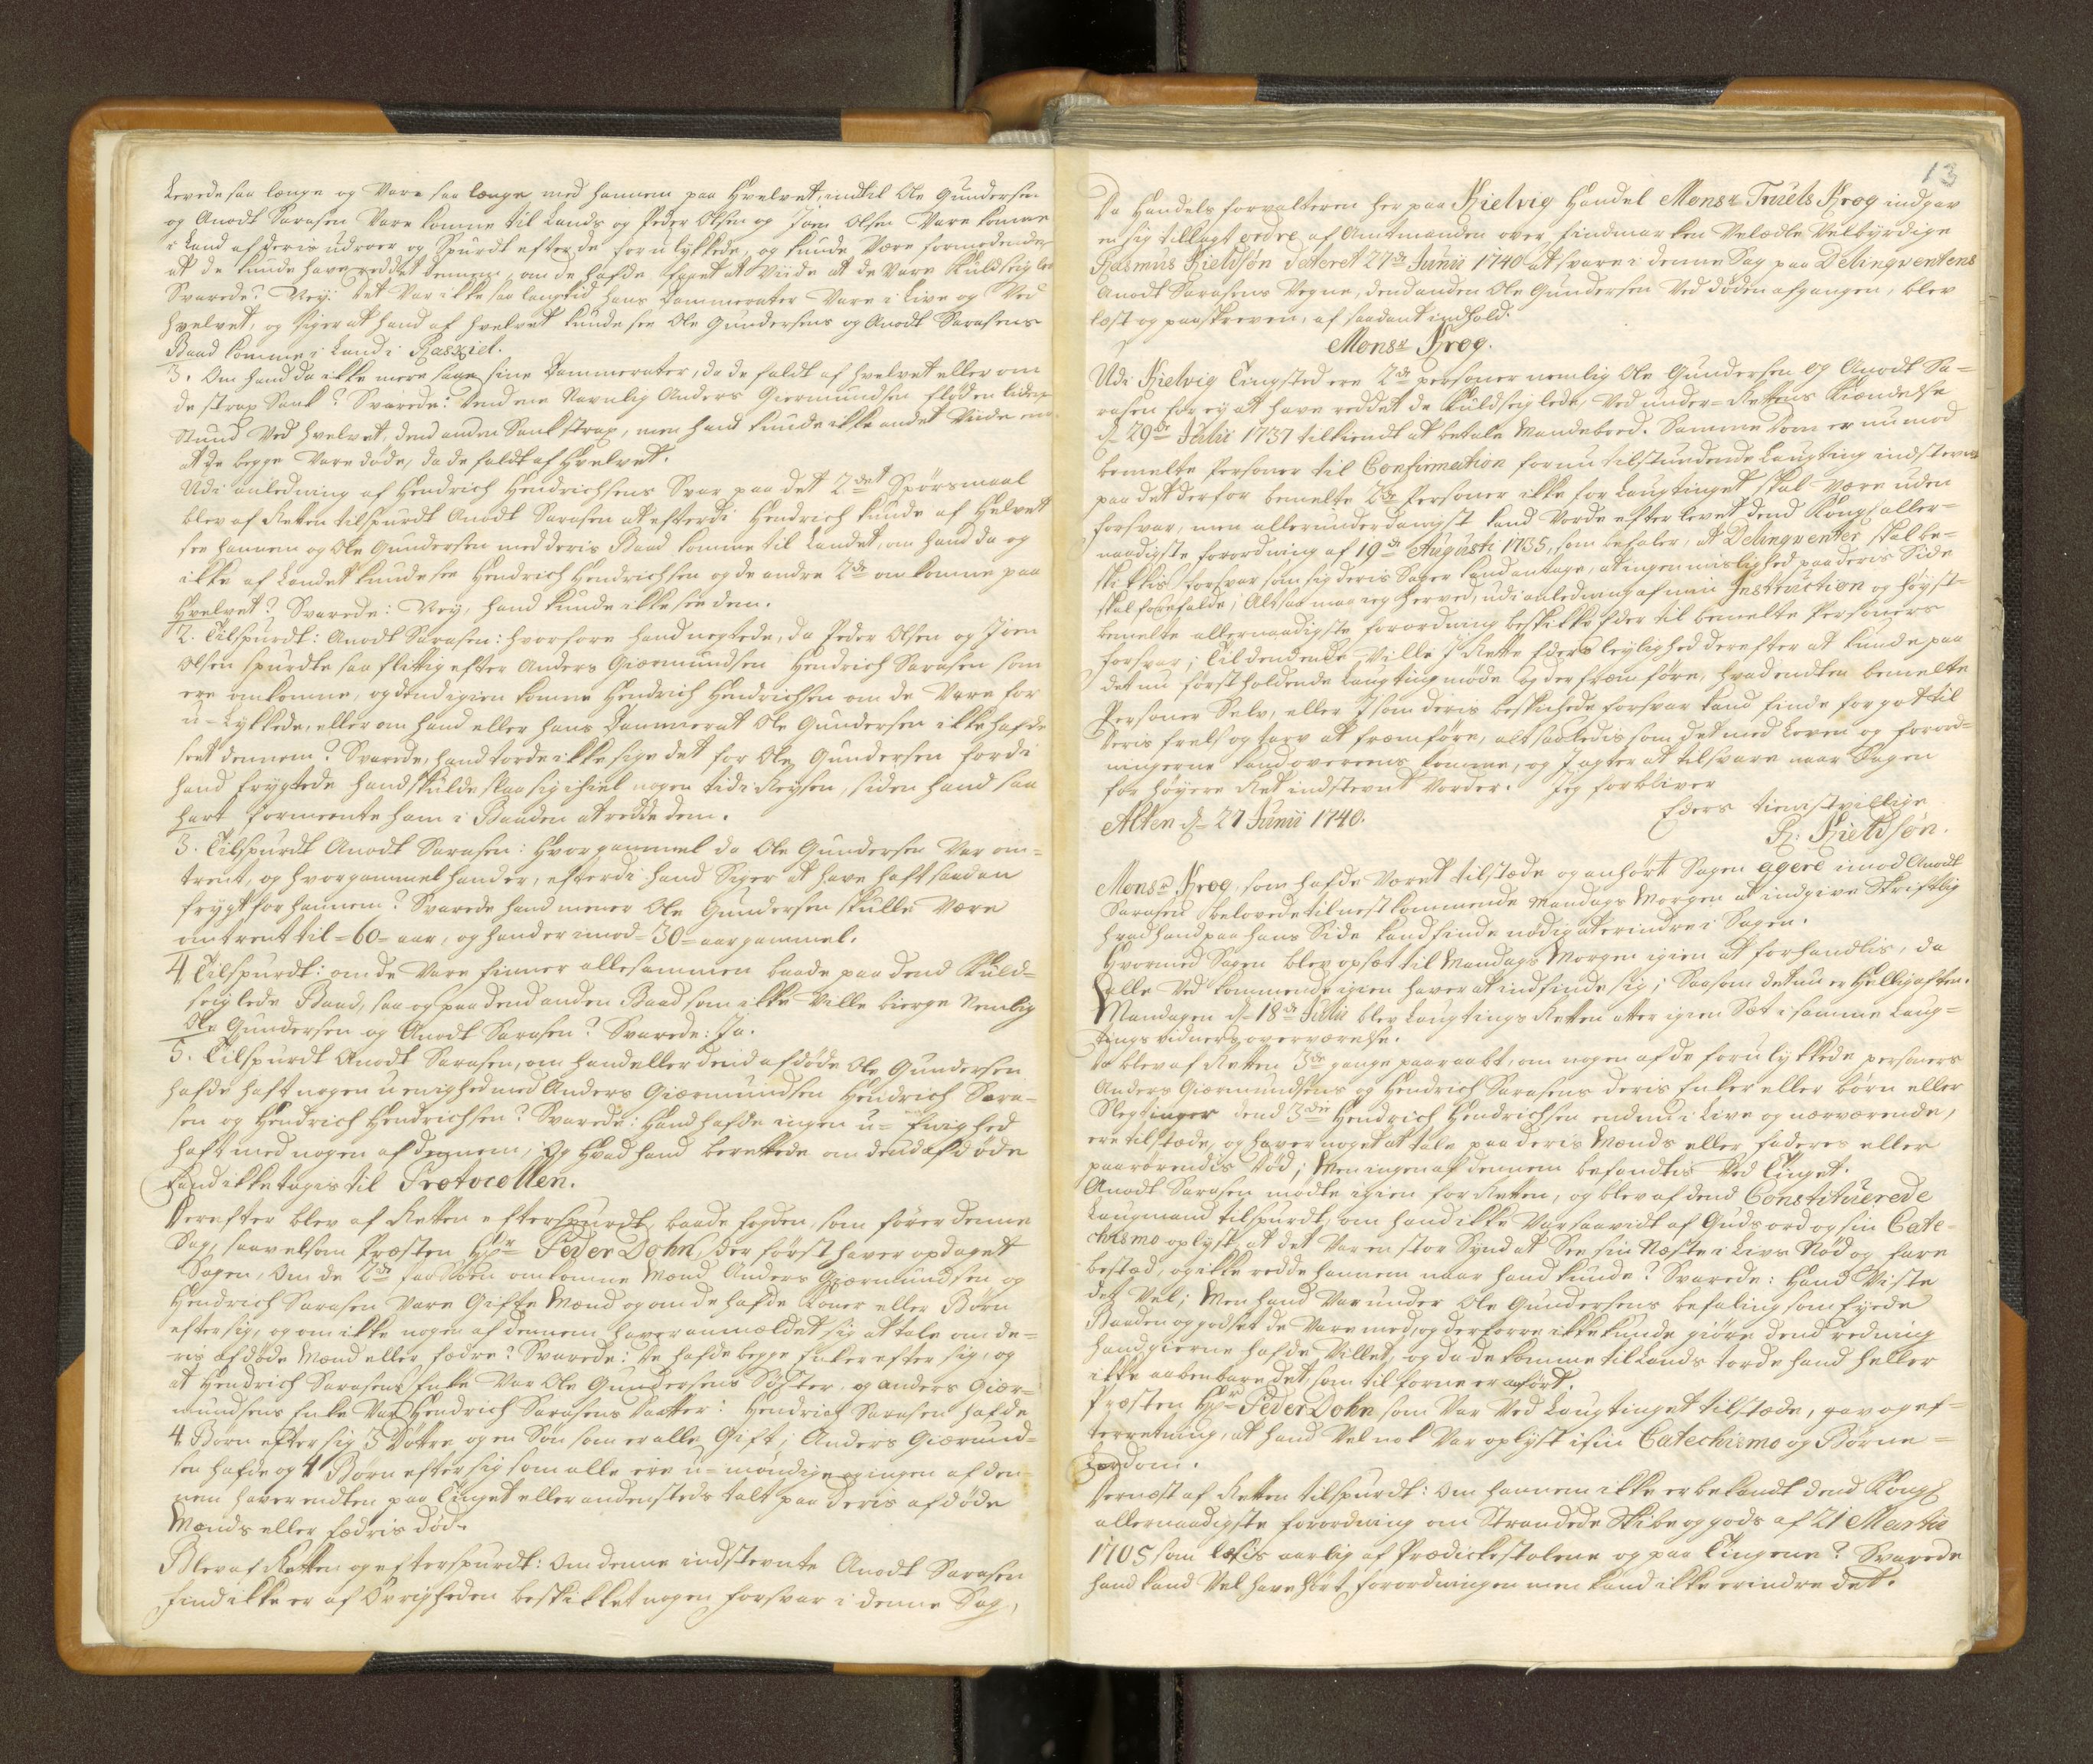 Levede saa længe og Vare saa længe med hannem paa Hvelvet, indtil Ole Gundersen
og Anodt Sarasen Vare komne til Lands og Peder Olsen og Joen Olsen Vare komne
i Land af deris udroer og Spurdt efter de forulykkede, og kunde Være formodende
at de kunde have reddet dennem, om de hafde sagt at viide at de Vare Kuldseiglede
Svarede: Ney: det Var ikke saa lang tid hans Cammerater Vare i Live og Ved
Hvelvet, og siger at hand af Hvelvet kunde see Ole Gundersens og Anodt Sarasens
Baad komme i Land i
3. Om hand da ikke mere saae sine Cammerater, da de faldt af Hvelvet eller om
de strax Sank? Svarede: Dend ene Navnlig Anders Giermundsen flød en liden
Stund Ved Hvelvet, dend anden Sank strax, men hand kunde ikke andet Viide end
at de begge Vare døde, da de faldt af Hvelvet.
Udi anledning af Hendrich Hendrichsens Svar paa det 2det Spørsmaal
blev af Retten tilspurdt Anodt Sarasen at efterdi Hendrich kunde af Helvet
see hannem og Ole Gundersen med deris Baad komme til Landet, om hand da og
ikke af Landet kunde see Hendrich Hendrichsen og de andre 2de omkomne paa
Hvelvet? Svarede: Ney, hand kunde ikke see dem.
2. Tilspurdt: Anodt Sarasen: hvorfore hand negtede, da Peder Olsen og Joen
Olsen spurdte saa flittig efter Anders Giærmundsen Hendrich Sarasen som
ere omkomne, og dend igien komne Hendrich Hendrichsen om de Vare for
u-Lykkede, eller om hand eller hans Cammerat Ole Gundersen ikke hafde
seet dennem? Svarede, hand torde ikke sige det for Ole Gundersen fordi
hand frygtede hand skulde slaa sig ihiel nogen tid i Reysen, siden hand saa
hart formeente ham i Baaden at redde dem.
3. Tilspurdt Anodt Sarasen: Hvor gammel da Ole Gundersen Var om=
trent, og hvor gammel hand er, efterdi hand Siger at have haft saadan
frygt for hannem? Svarede hand mener Ole Gundersen skulle Være
omtrent til = 60 = aar, og hand er imod = 30 = aar gammel.
4 Tilspurdt: om de Vare finner allesammen baade paa dend Kuld=
seiglede Baad, saa og paa dend anden Baad som ikke Ville bierge Nemlig
Ole Gundersen og Anodt Sarasen? Svarede: Ja.
5. Tilspurdt Anodt Sarasen, om hand eller dend afdøde Ole Gundersen
hafde haft nogen uenighed med Anders Giærmundsen Hendrich Sara=
sen og Hendrich Hendrichsen? Svarede: Hand hafde ingen u=Enighed
haft med nogen af dennem; Og Hvad hand berettede om dend afdøde
kand ikke tages til Protocollen.
Derefter blev af Retten efterspurdt, baade fogden, som fører denne
Sag, saavelsom Præsten Hr Peder Dohn, der først haver opdaget
Sagen, Om de 2de omkomne Mænd Anders Giærmundsen og
Hendrich Sarasen Vare Gifte Mænd og om de hafde Koner eller Børn
efter sig, og om ikke nogen af dennem haver anmældet sig at tale om de=
ris afdøde Mænd eller fædre? Svarede: De hafde begge Enker efter sig, og
at Hendrich Sarasens Enke Var Ole Gundersens Søster, og Anders Giær=
mundsens Enke Var Hendrich Sarasens Daatter: Hendrich Sarasen hafde
4 Børn efter sig 3 Døttre og en Søn som er alle Gift; Anders Giærmund=
sen hafde og 4 Børn efter sig som alle ere u=myndige og ingen af den=
nem haver endten paa Tinget eller andensteds talt paa deris afdøde
Mænds eller fædris død.
Blev af Retten og efterspurdt: Om denne indstevnte Anodt Sarasen
kand ikke er af Øvrigheden beskikket nogen forsvar i denne Sag,
13
Da Handels forvalteren her paa Kielvig Handel Monsr Truels Krog indgav
en sig tillagt ordre af Amtmanden over Findmarken Velædle Velbyrdige
Rasmus Kieldsøn dateret 27de Junii 1740 at svare i denne Sag paa Delinqventens
Anodt Sarasens Vegne, dend anden Ole Gundersen Ved døden afgangen, blev
læst og paaskreven, af saadant indhold.
Monsr Krog.
Udi Kielvig Tingsted ere 2de personer nemlig Ole Gundersen og Anodt Sa=
rasen for ey at have reddet de Kuldseiglede, Ved under=Rettens Kiændelse
d 29de Julii 1737 tilkiendt at betale Mandebod. Samme Dom er nu mod
bemelte Personer til Confirmation for nu tilstundende Laugting indstevnt
paa det derfor bemelte 2de Personer ikke for Laugtinget skal være uden
forsvar, men allerunderdanigst kand Vorde efterlevet dend Kongl aller=
naadigste forordning af 19de Augusti 1735, som befaler, at Delinqventer skal be=
skikkis forsvar som sig deris Sager kand antage, at ingen mislighed paa deris Side
skal forrefalde; Altsaa maa ieg herved, udi anledning af min Instruction og høyst=
bemelte allernaadigste forordning beskikke Eder til bemelte Personers
forsvar; Til den Ende Ville I Rette Eders leylighed derefter at kunde paa
det nu først holdende Laugting møde og der fræm føre, hvad endten bemelte
Personer Selv, eller I som deris beskikkede forsvar kand finde for got til
deris frelse og tarv at fræmføre, alt saaledis som det med Loven og forord=
ningerne kand overeens komme, og I agter at tilsvare naar Sagen
for høyere Ret indstevnt Vorder. Jeg forbliver
Eders tienistvillige
Alten d 27 Junii 1740.
R: Kieldsøn.
Monsr Krog, som hafde Været tilstæde og anhørt Sagen agere imod Anodt
Sarasen belovede til nest kommende Mandags Morgen at indgive Skriftlig
hvad hand paa hans Side kand finde nødig at erindre i Sagen.
Hvormed Sagen blev opsat til Mandags Morgen igien at forhandlis, da
alle Ved kommende igien haver at indfinde sig; Saasom det nu er Helligaften.
Mandagen d 18de Julii blev Laugtings Retten atter igien Sat i samme Laug=
tings vidners overværelse.
Da blev af Retten 3de gange paaraabt, om nogen af de forulykkede personers
Anders Giærmundsens og Hendrich Sarasens deris Enker eller børn eller
Slegtinger dend 3die Hendrich Hendrichsen endnu i Live og nærværende,
ere tilstæde, og haver noget at tale paa deris Mænds eller faderes eller
paarørendis Død; Men ingen af dennem befandtes Ved Tinget.
Anodt Sarasen mødte igien for Retten, og blev af dend Constituerede
Laugmand tilspurdt, om hand ikke Var saavidt af Guds ord og sin Cate=
chismo oplyst, at det Var en stor Synd at See sin Næste i Livs Nød og fare
bestæd, og ikke redde hannem naar hand kunde? Svarede: Hand Viste
det Vel; Men hand Var under Ole Gundersens befaling som eyede
Baaden og godset de Vare med, og derforre ikke kunde giøre dend redning
hand gierne hafde Villet, og da de komme til Lands torde hand heller
ikke aabenbare det, som til forne er anført.
Præsten Hr Peder Dohn som Var Ved Laugtinget tilstæde, gav og ef=
terretning, at hand Vel nok Var oplyst i sin Catechismo og Børne=
lærdom.
Dernæst af Retten tilspurdt: Om hannem ikke er bekandt dend Kongl
allernaadigste forordning om Strandede Skibe og gods af 21 Martii
1705 som læsis aarlig af Prædickestolene og paa Tingene? Svarede
hand kand Vel have hørt forordningen men kand ikke erindre det.